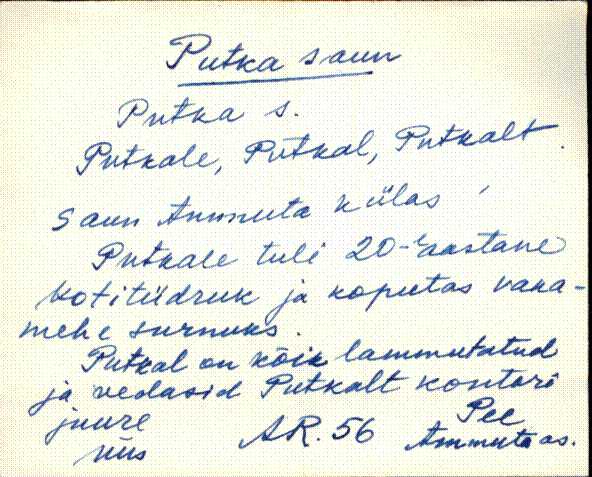 Putka saun
Putka s.
Putkale, Putkal, Putkalt.
saun Ammuta külas
Putkale tuli 20-aastane
kotitüdruk ja koputas vana-
mehe surnuks.
Putkal on kõik lammutatud
ja vedasid Putkalt kontori
juure
AR. 56 Pee
Ammuta as.